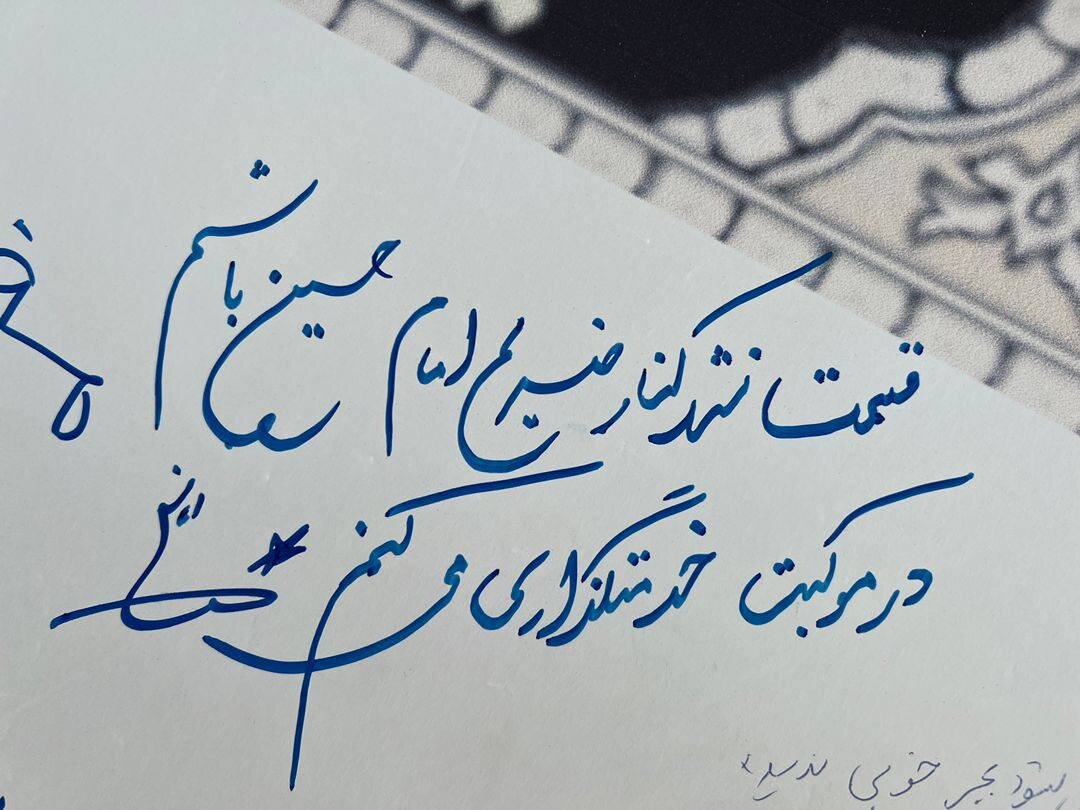 قسمت نشد کنار ضریح امام حسین باشم
در موکبت خدمتگذاری می کنم
بجز خوبی ندیدم